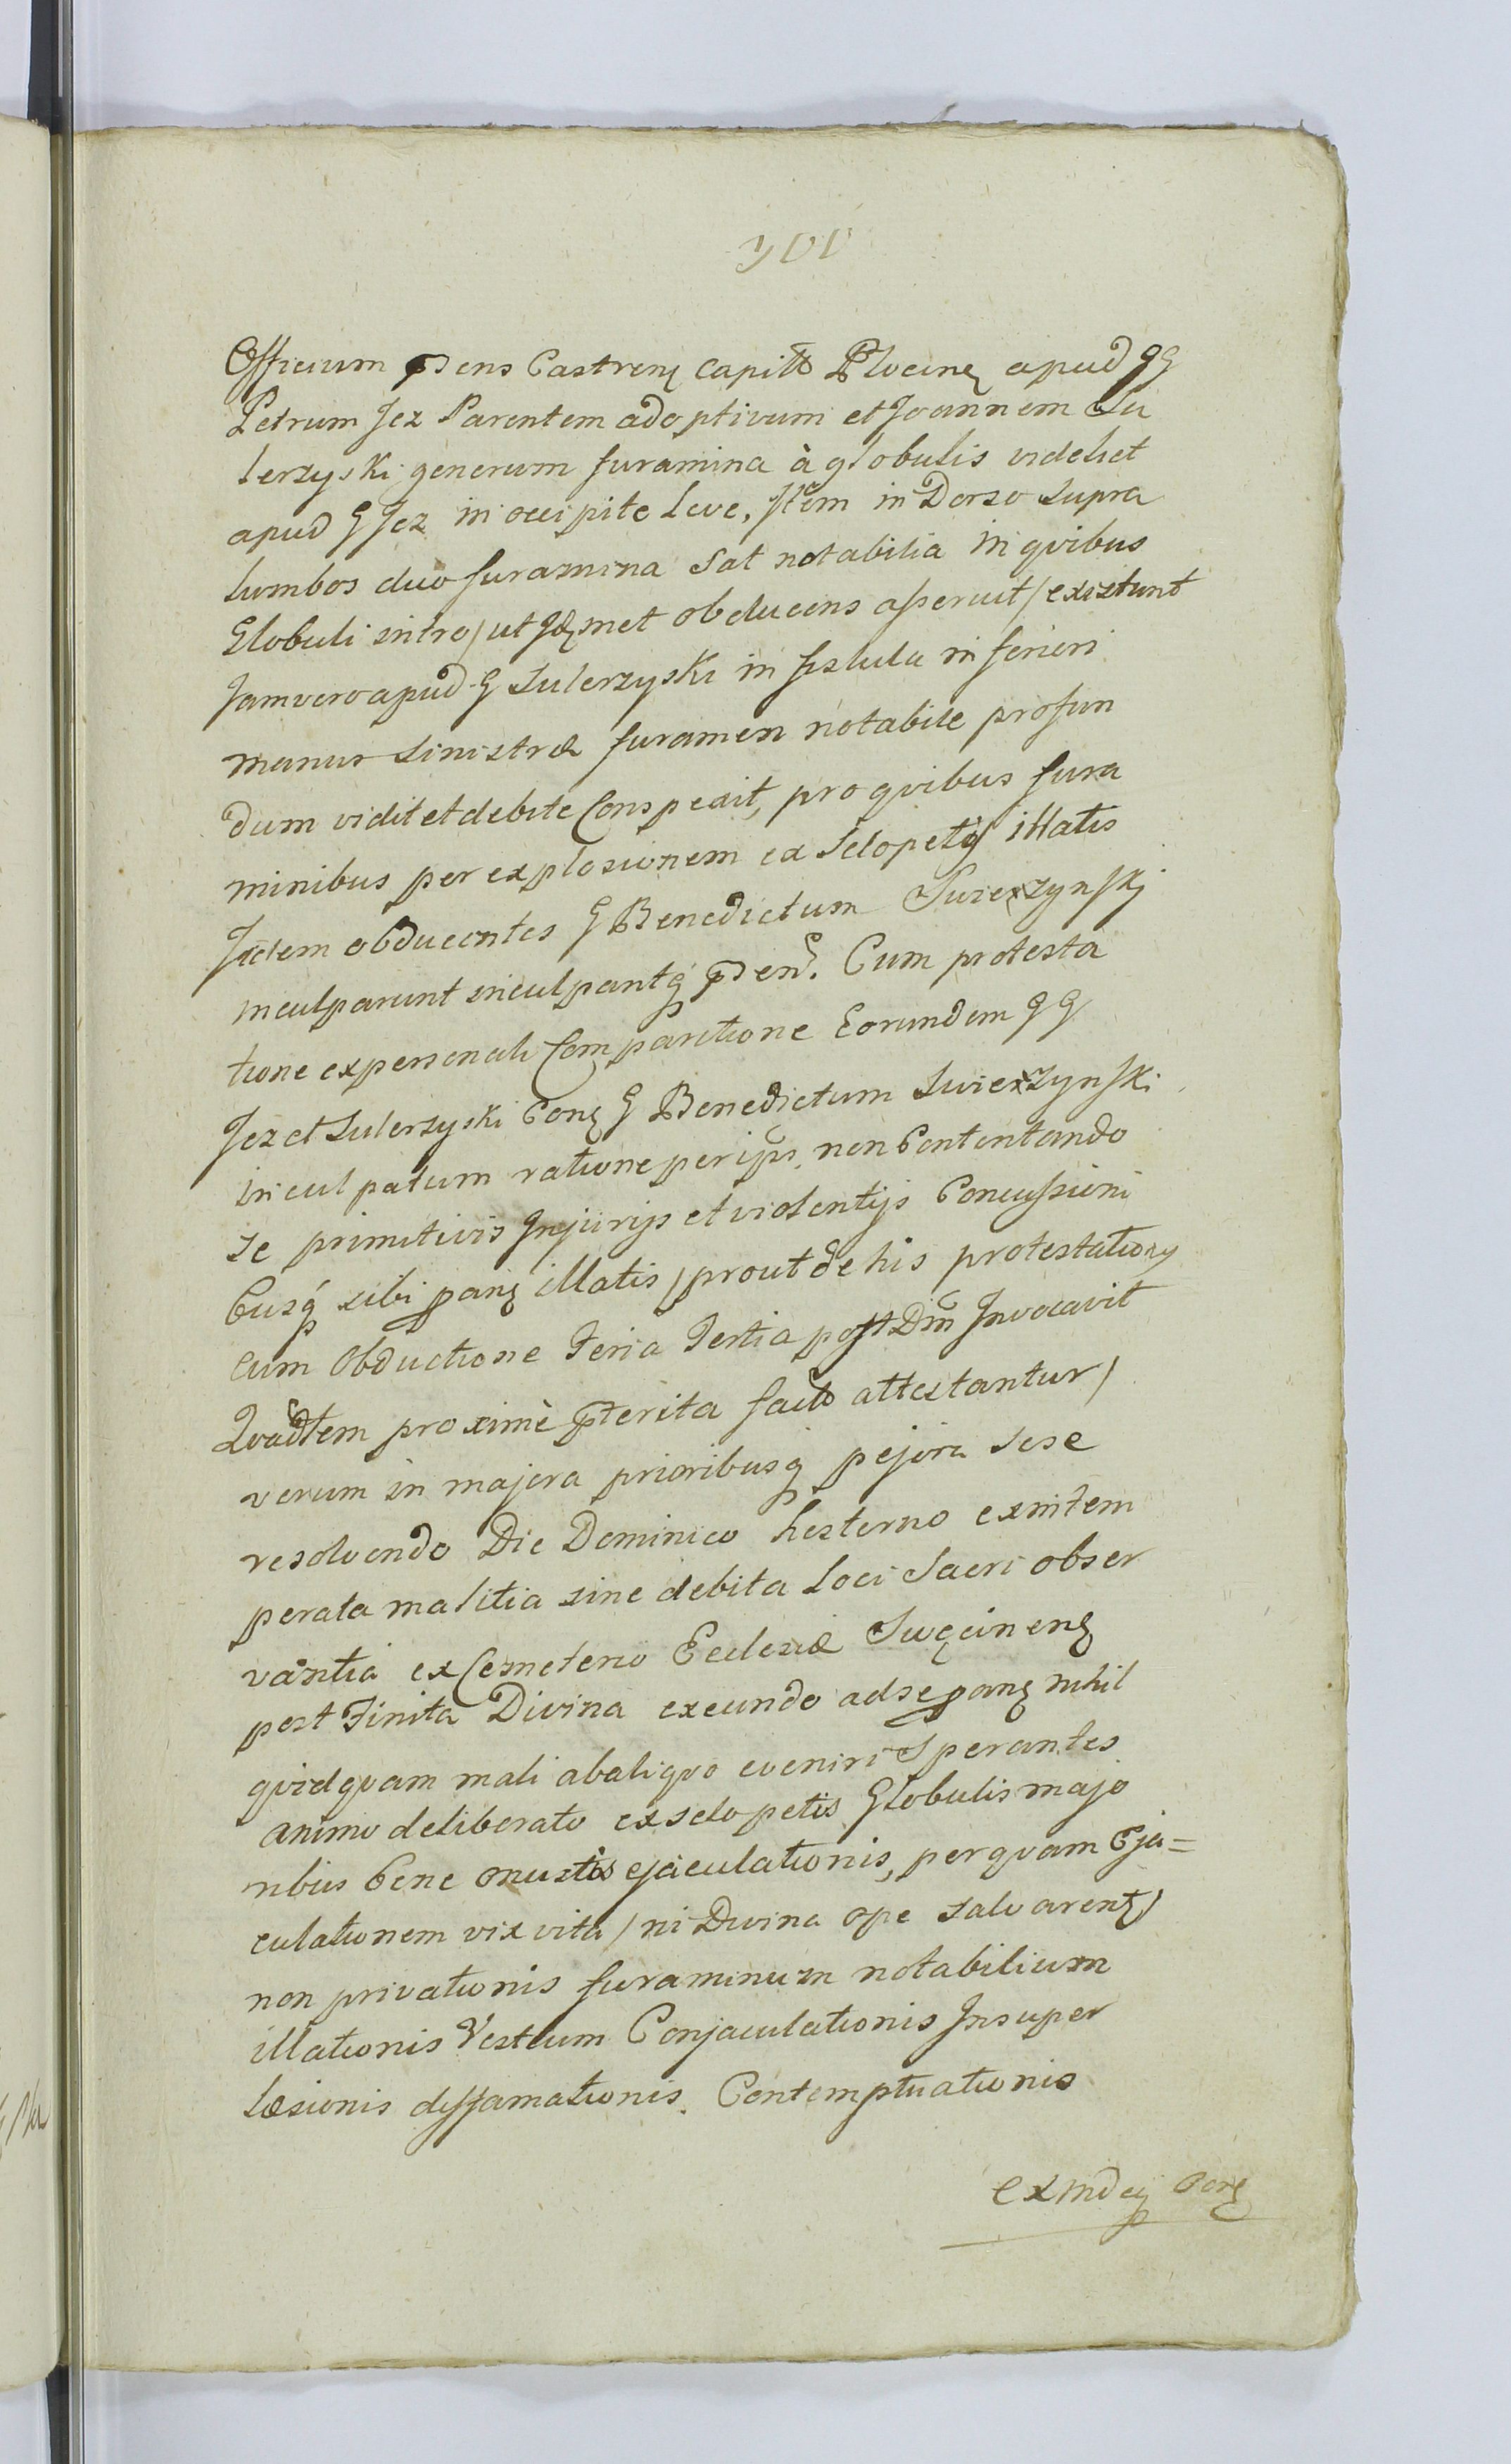 900
Officium pdens Castren capitle Plocine apud GG
Petrum Jez Parentem adoptivum et Joannem Su
lerzyski generum furamina à globulis videlict
apud G Jez in occipite Leve, Item in Dorso supra
lumbos duo furamina sat notabilia in qvibus
Globuli intro / ut met obducens asseruit / existunt
Jam vero apud G Sulerzyski in fistula inferiori
manus sinistræ furamen notabile profun
dum vidit et debite Conspexit, pro qvibus fura
minibus per explosionem ex sclopetis illatis
Iidem obducentes G Benedictum Swierzynski
inculparunt inculpantq pden. Cum protesta
tione ex personali Comparitione Eorundem GG
Jez et Sulerzyski Con G Benedictum Swierzynski
inculpatum ratione per ips. non Contentando
se primitivis Injurijs et violentijs Concussioni
busq sibi pan illatis / prout de his protestations
cum Obductione Feria Tertia post Dm Invocavit
Qvadtem proximè pterita facto attestantur /
verum in majora prioribusq pejora sese
resolvendo Die Dominico hesterno exintem
perata malitia sine debita Loci Sacri obser
vantia ex Cemeterio Ecclesiæ Swęcinen
post Finita Divina exeundo ad se pan nihil
qvidqvam mali ab aliqvo eveniri Sperantes
animo deliberato ex sclopetis Globulis majo
ribus bene onustis ejaculationis, per qvam Eja=
culationem vix vita / ni Divina ope salvarent /
non privationis furaminum notabilium
illationis Vestium Conjaculationis Insuper
Læsionis diffamationis. Contemptuationis
exindeq Con